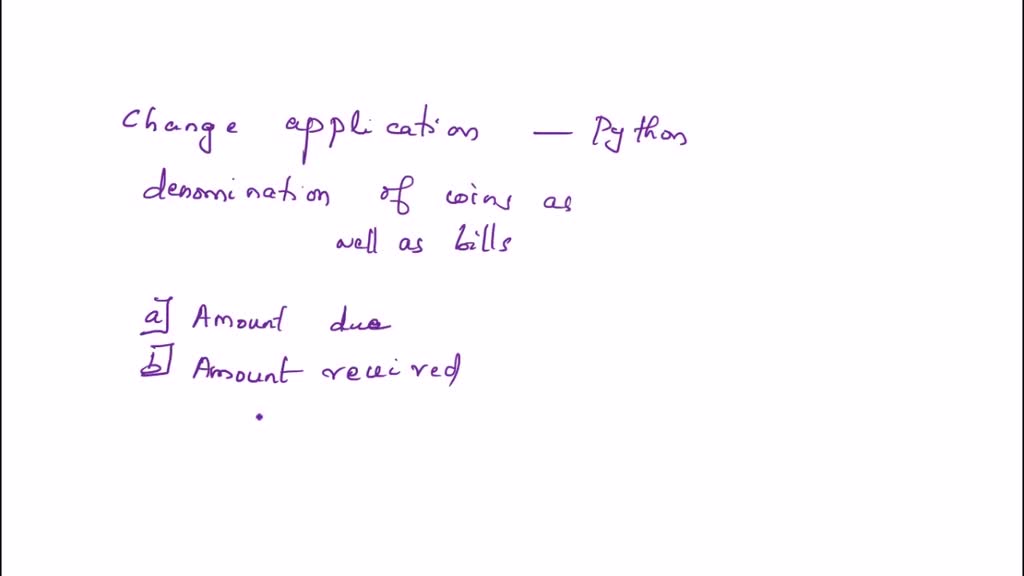 Change application — Python
denomination of coins as
well as bills
a] Amount due
b] Amount received